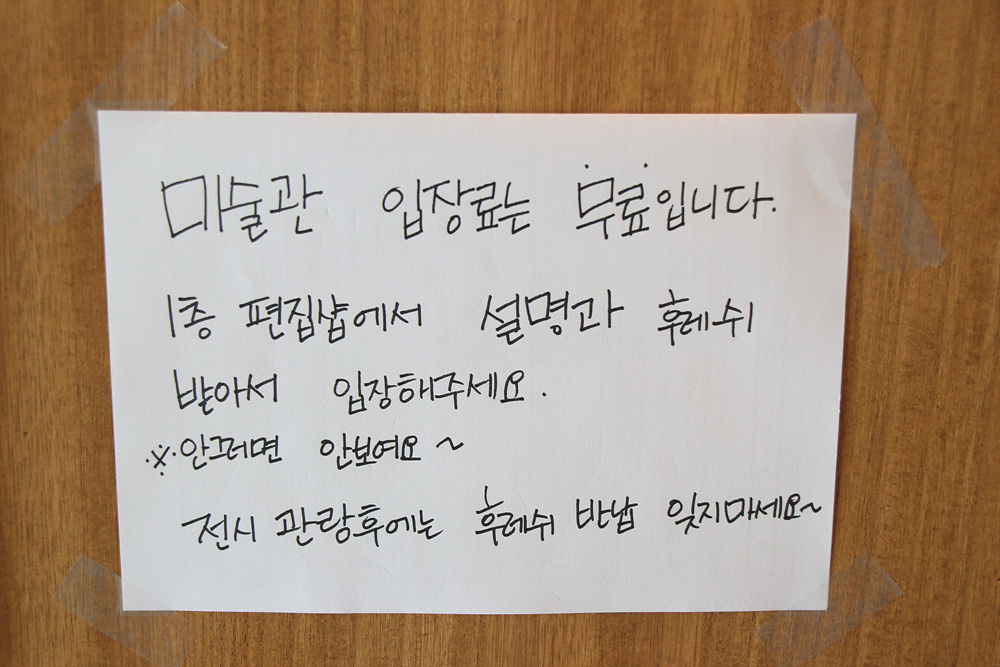 미술관 입장료는 무료입니다.
1층 편집샵에서 설명과 후레쉬
받아서 입장해주세요.
※안그러면 안보여요~
전시 관람후에는 후레쉬 반납 잊지마세요~